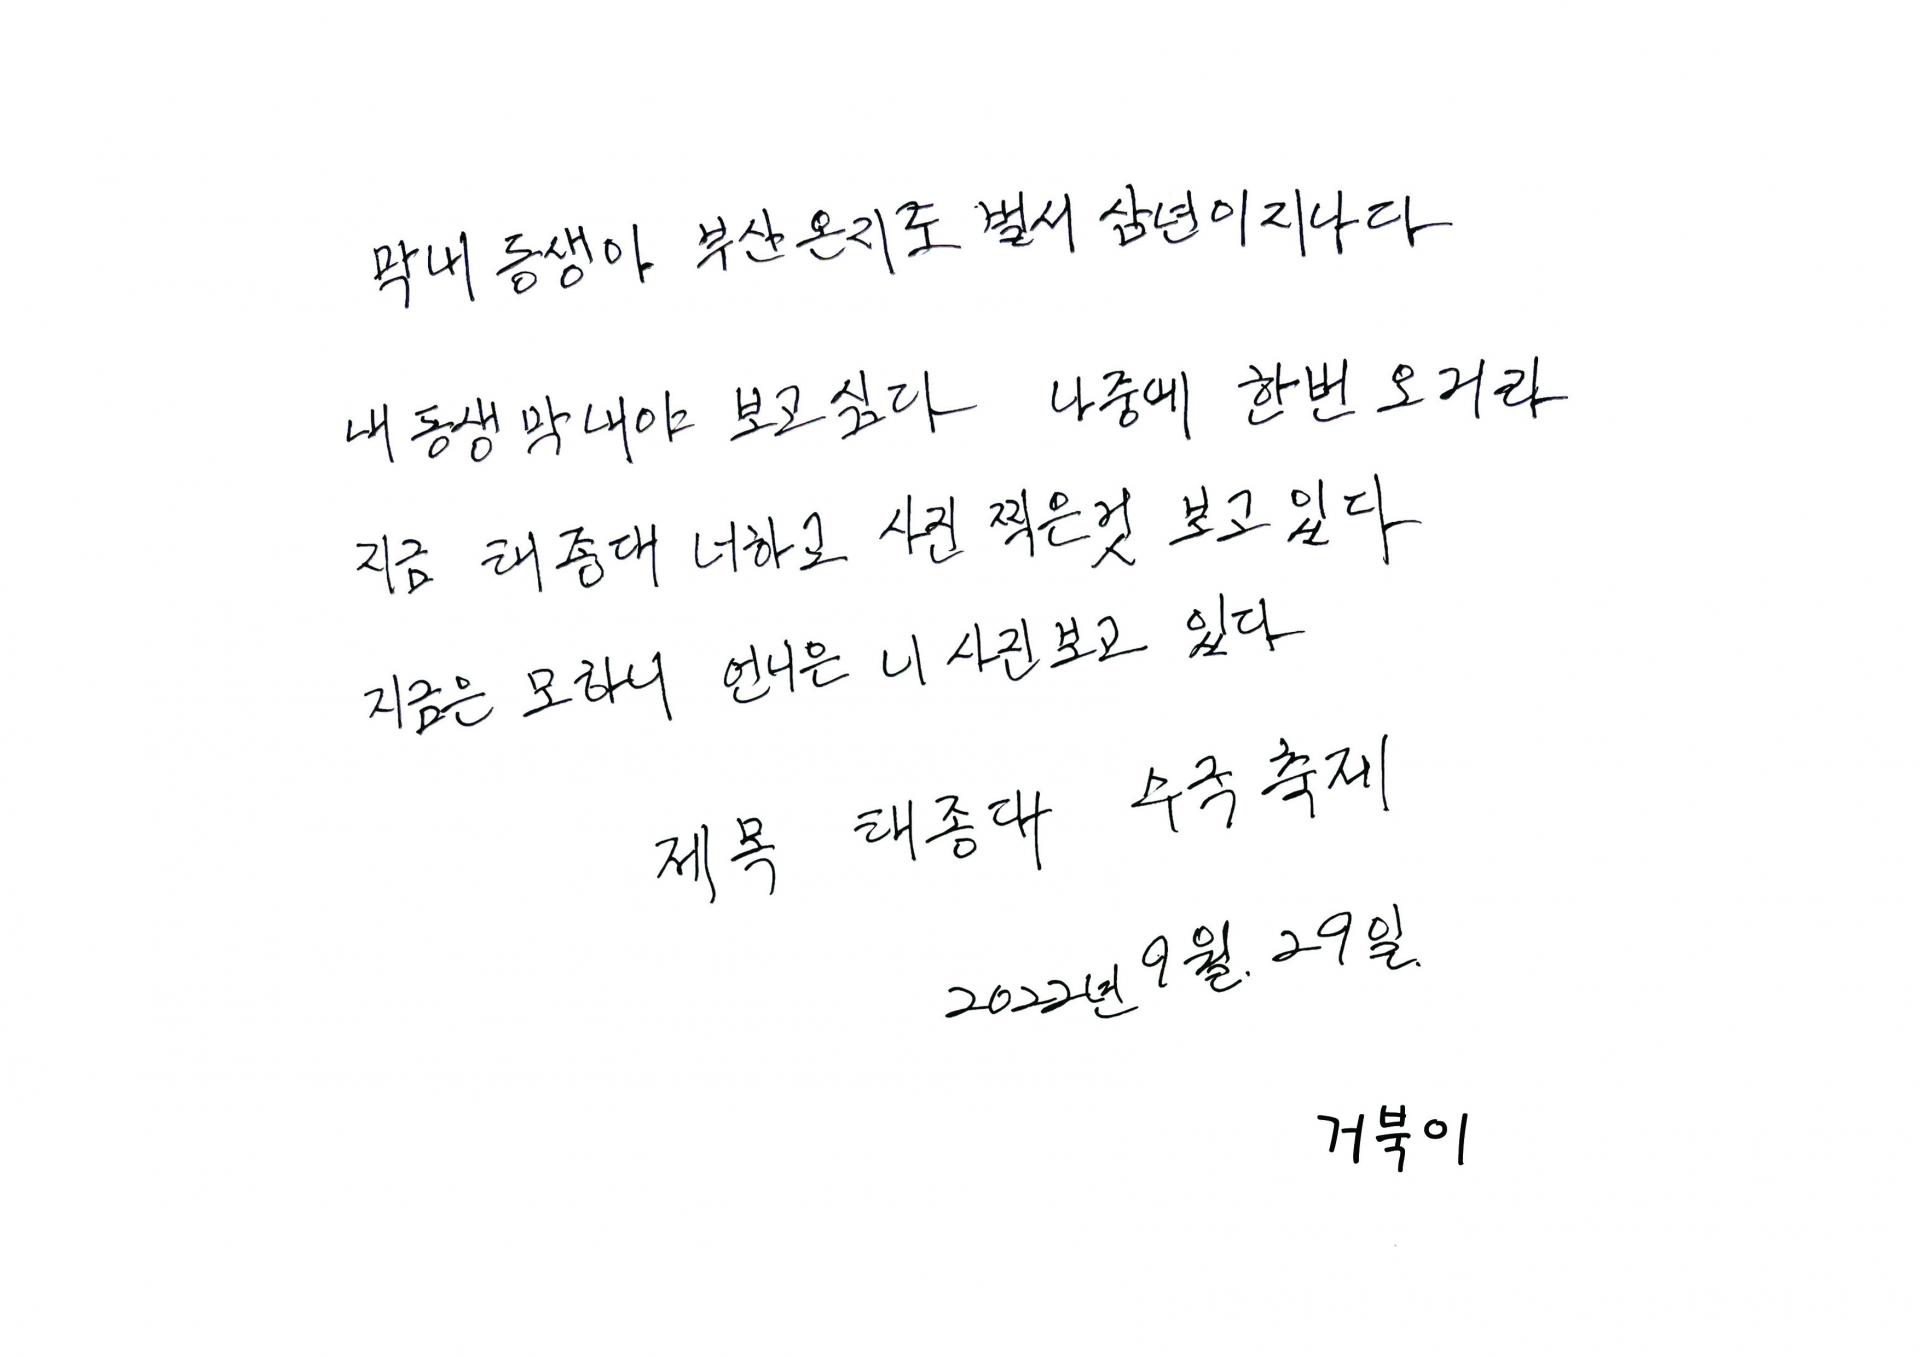 막내 동생아 부산온지로 벌서 삼년이지나다
내 동생 막내야 보고싶다 나중에 한번 오거라
지금 태종대 너하고 사진 찍은것 보고있다
지금은 모하니 언니은 니 사진보고 있다
제목 태종대 수국축제
2022년 9월. 29일.
거북이